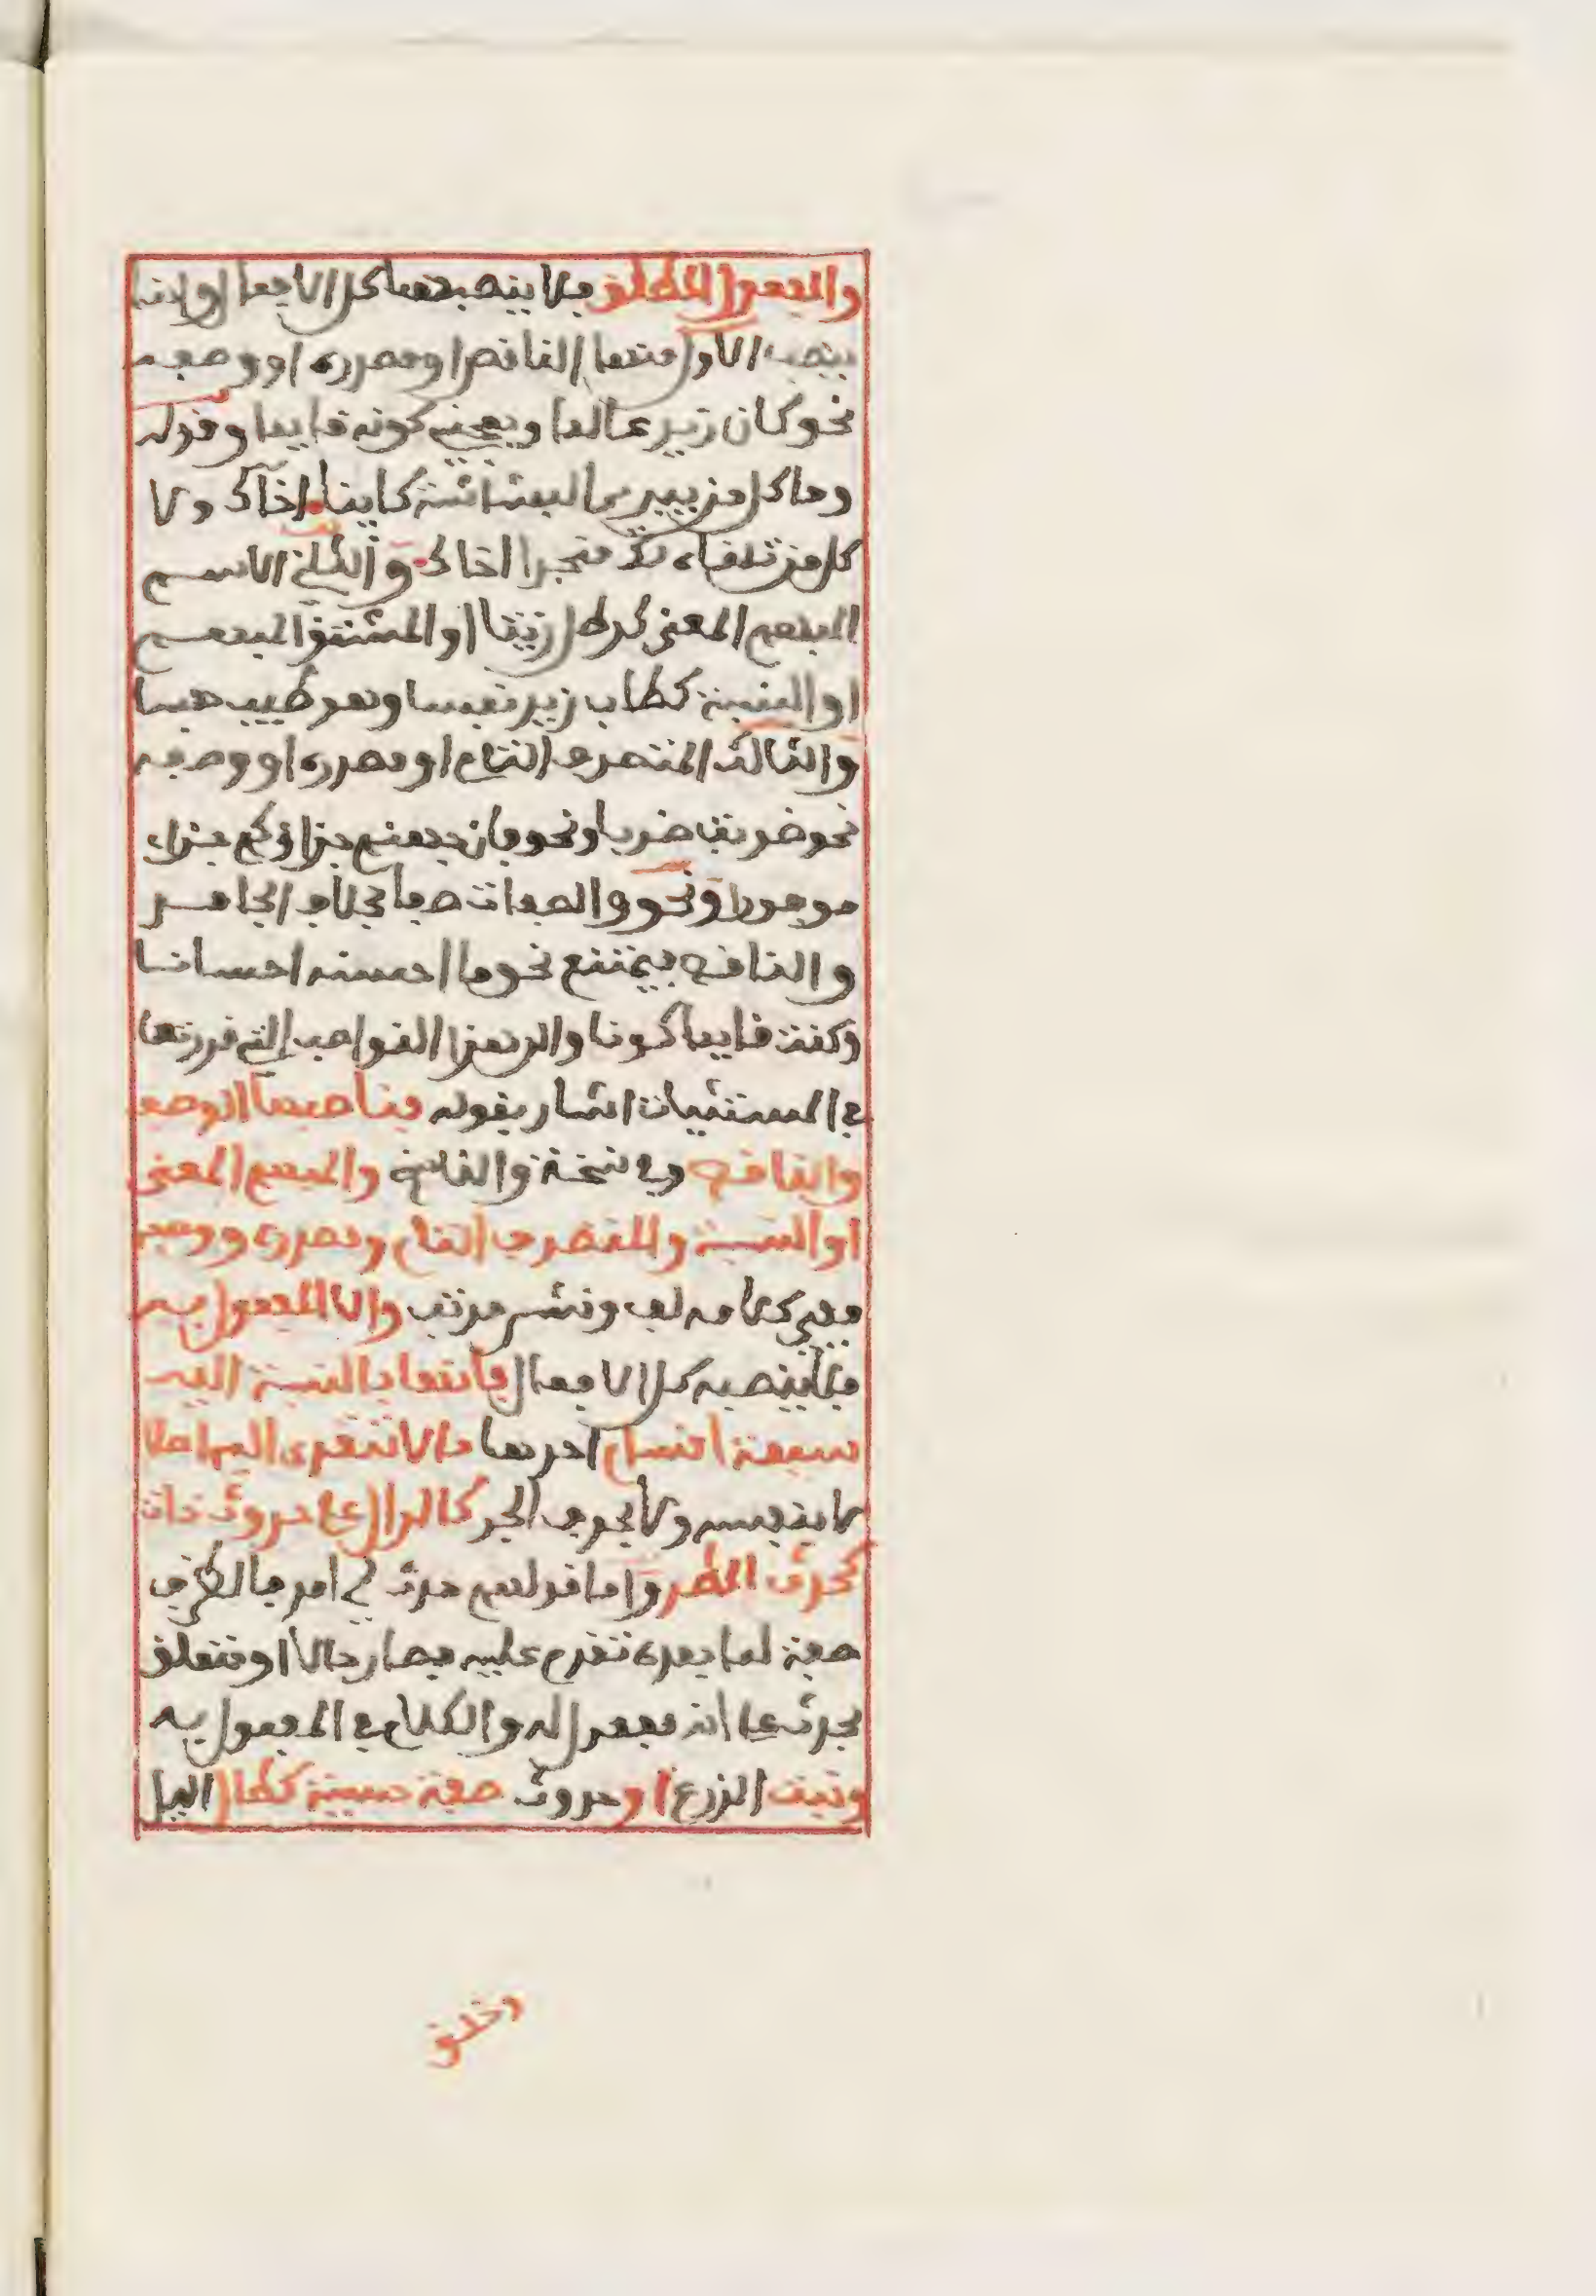 والمفعول المطلق فلا ينصبهما كل الافعال وانما
ينصب الاول منهما الناقص او مصدره او وصفه
نحو كان زيد عالما ويعجبني كونه قايما وقوله
وما كل من يبدي البشاشة كاينا اخاك ولا
كل من تلفاه لك منجدا اخاك والثاني الاسم
المبهم المعنى كرطل زيتا او المشتق المبهم
او النسبة كطاب زيد نفسا وهو طيب نفسا
والثالث المتصرف التام او مصدره او وصفه
نحو ضربت ضربا ونحو فان جهنم جزاؤكم جزاء
موفورا ونحو والصافات صفا بخلاف الجامد
والناقص فيمتنع نحو ما احسنه احسانا
وكنت قايما كونا والى هذا النواصب التي قررتها
في المستثنيات اشار بقوله فناصبها الوصف
والناقص وفي نسخة والمبهم المعنى
او النسبة والمتصرف التام ومصدره ووصفه
ففي كلامه لف ونشر مرتب والا المفعول به
فلا ينصبه كل الافعال فانها بالنسبة اليه
سبعة اقسام احدها ما لا تتعدى اليه اصلا
لا بنفسه ولا بحرف الجر كالدال على حدوث ذات
كحدث المطر واما قولهم حدث لي امر فالظرف
صفة لما بعده تقدم عليه فصار حالا او متعلق
بحدث على انه مفعول له والكلام في المفعول به
ونبت الزرع او حدوث صفة حسية كطال اليل
وخلق